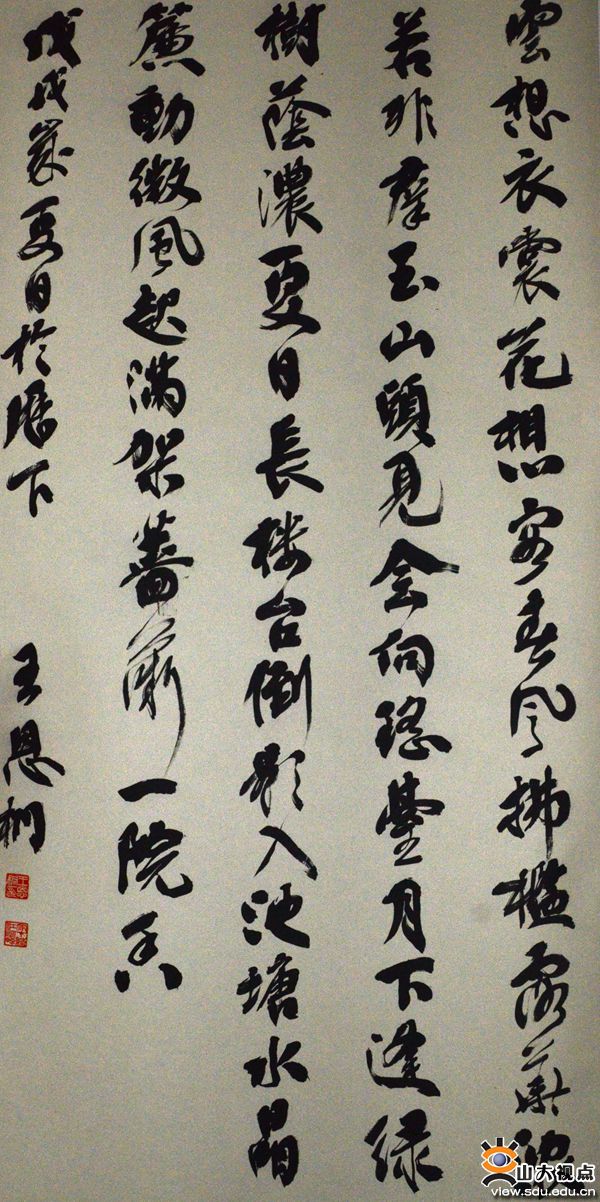 雲想衣裳花想容春風拂檻露華濃
若非羣玉山頭見會向瑤臺月下逢绿
樹蔭濃夏日長楼台倒影入池塘水晶
簾動微風起滿架薔薇一院香
戊戌歲夏日於歷下
王恩桐
山大视点
view.sdu.edu.cn